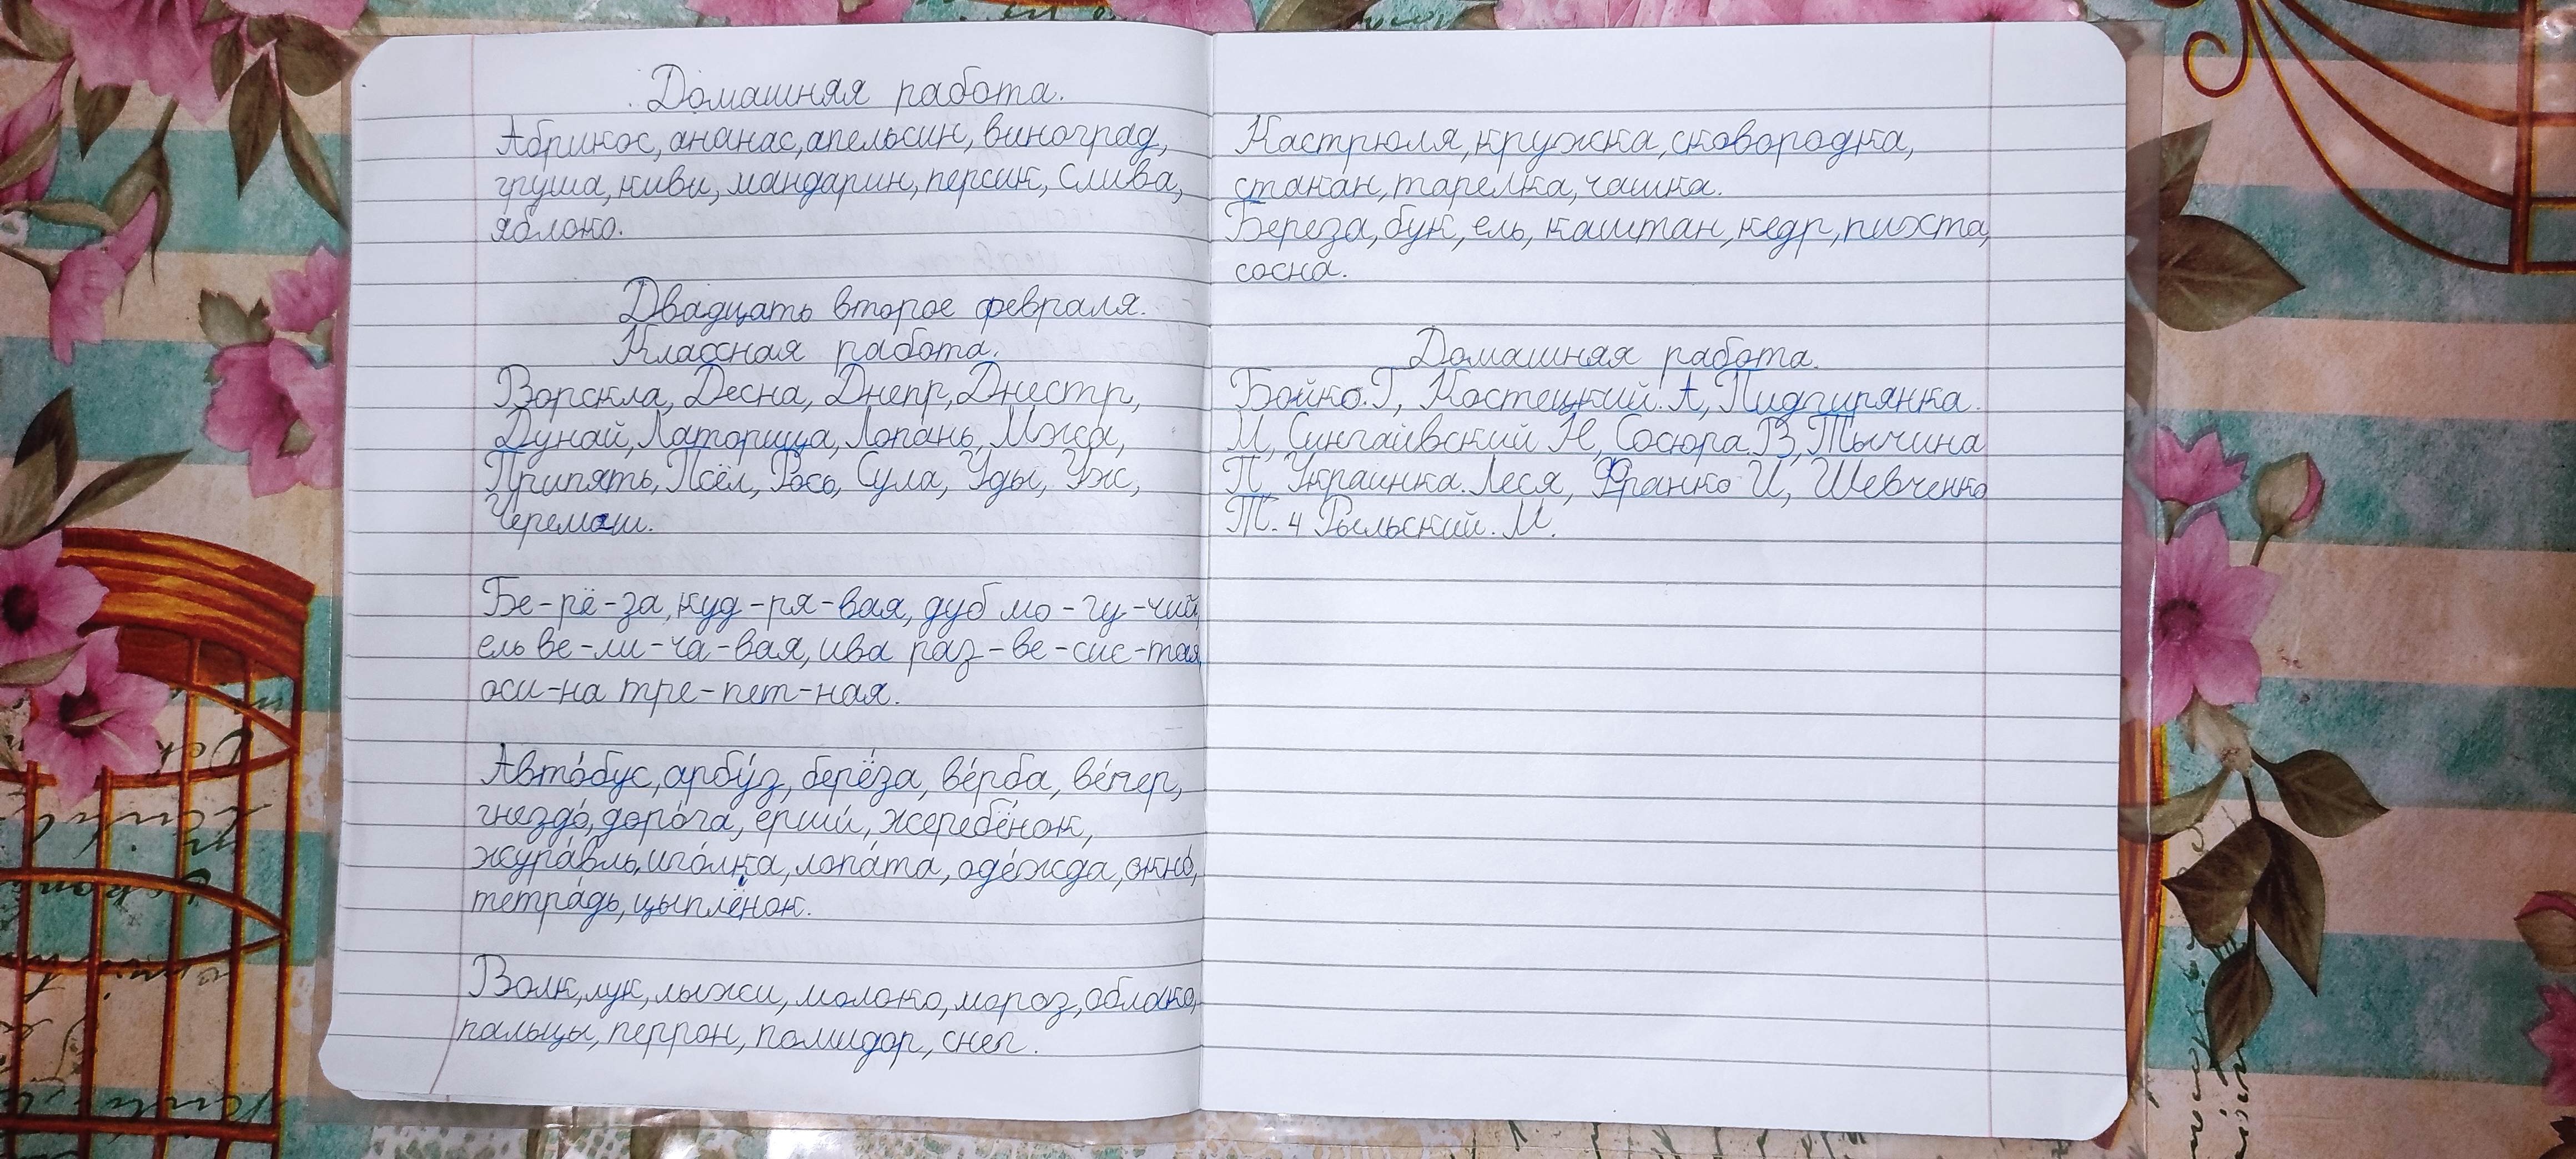 Домашняя работа.
Абрикос, ананас, апельсин, виноград,
груша, киви, мандарин, персик, слива,
яблоко.
Двадцать второе февраля.
Классная работа.
Ворскла, Десна, Днепр, Днестр,
Дунай, Латорица, Лопань, Мжа,
Припять, Псёл, Рось, Сула, Уды, Уж,
Черемош.
Бе-рё-за, куд-ря-вая, дуб мо-гу-чий,
ель ве-ли-ча-вая, ива раз-ве-сис-тая,
оси-на тре-пет-ная.
Авто́бус, арбу́з, берёза, ве́рба, ве́чер,
гнездо́, доро́га, ерши́, жеребёнок,
жура́вль, иго́лка, лопа́та, оде́жда, окно́,
тетра́дь, цыплёнок.
Волк, лук, лыжи, молоко, мороз, облако,
пальцы, перрон, помидор, снег.
Кастрюля, кружка, сковородка,
стакан, тарелка, чашка.
Береза, бук, ель, каштан, кедр, пихта,
сосна.
Домашняя работа.
Бойко. Г, Костецкий. А, Пидгирянка.
М, Сингаивский Н, Сосюра. В, Тычина
П, Украинка. Леся, Франко И, Шевченко
Т. 4 Рыльский. М.